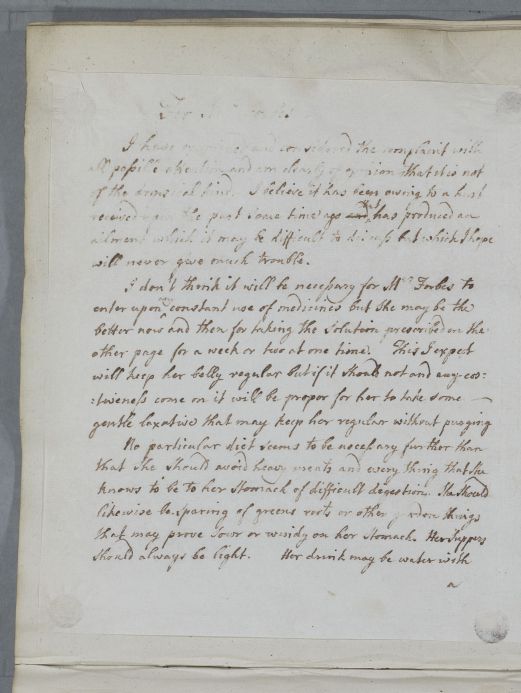 For M Forbes
I have examined and considered the complaint with
all possible attention and am clearly of opinion that it is not
of the dropsical kind. I believe it has been owing to a hurt
received upon the part some time ago that has produced an
ailment which it may be difficult to discuss but which I hope
will never give much trouble.
I don't think it will be necessary for Mrs Forbes to
enter upon any constant use of medicines but she may be the
better now and then for taking the Solution prescribed on the
other page for a week or two at one time. This I expect
will keep her belly regular but if it should not and any cos:
:tiveness come on it will be propor for her to take some
gentle laxative that may keep her regular without purging
No particular diet seems to be necessary further than
that She should avoid heavy meats and every thing that she
knows to be to her Stomach of difficult degestion. She should
likewise be sparing of greens roots or other garden things
that may prove Sour or windy on her Stomach. Her Suppers
should always be light. Her drink may be water with
a